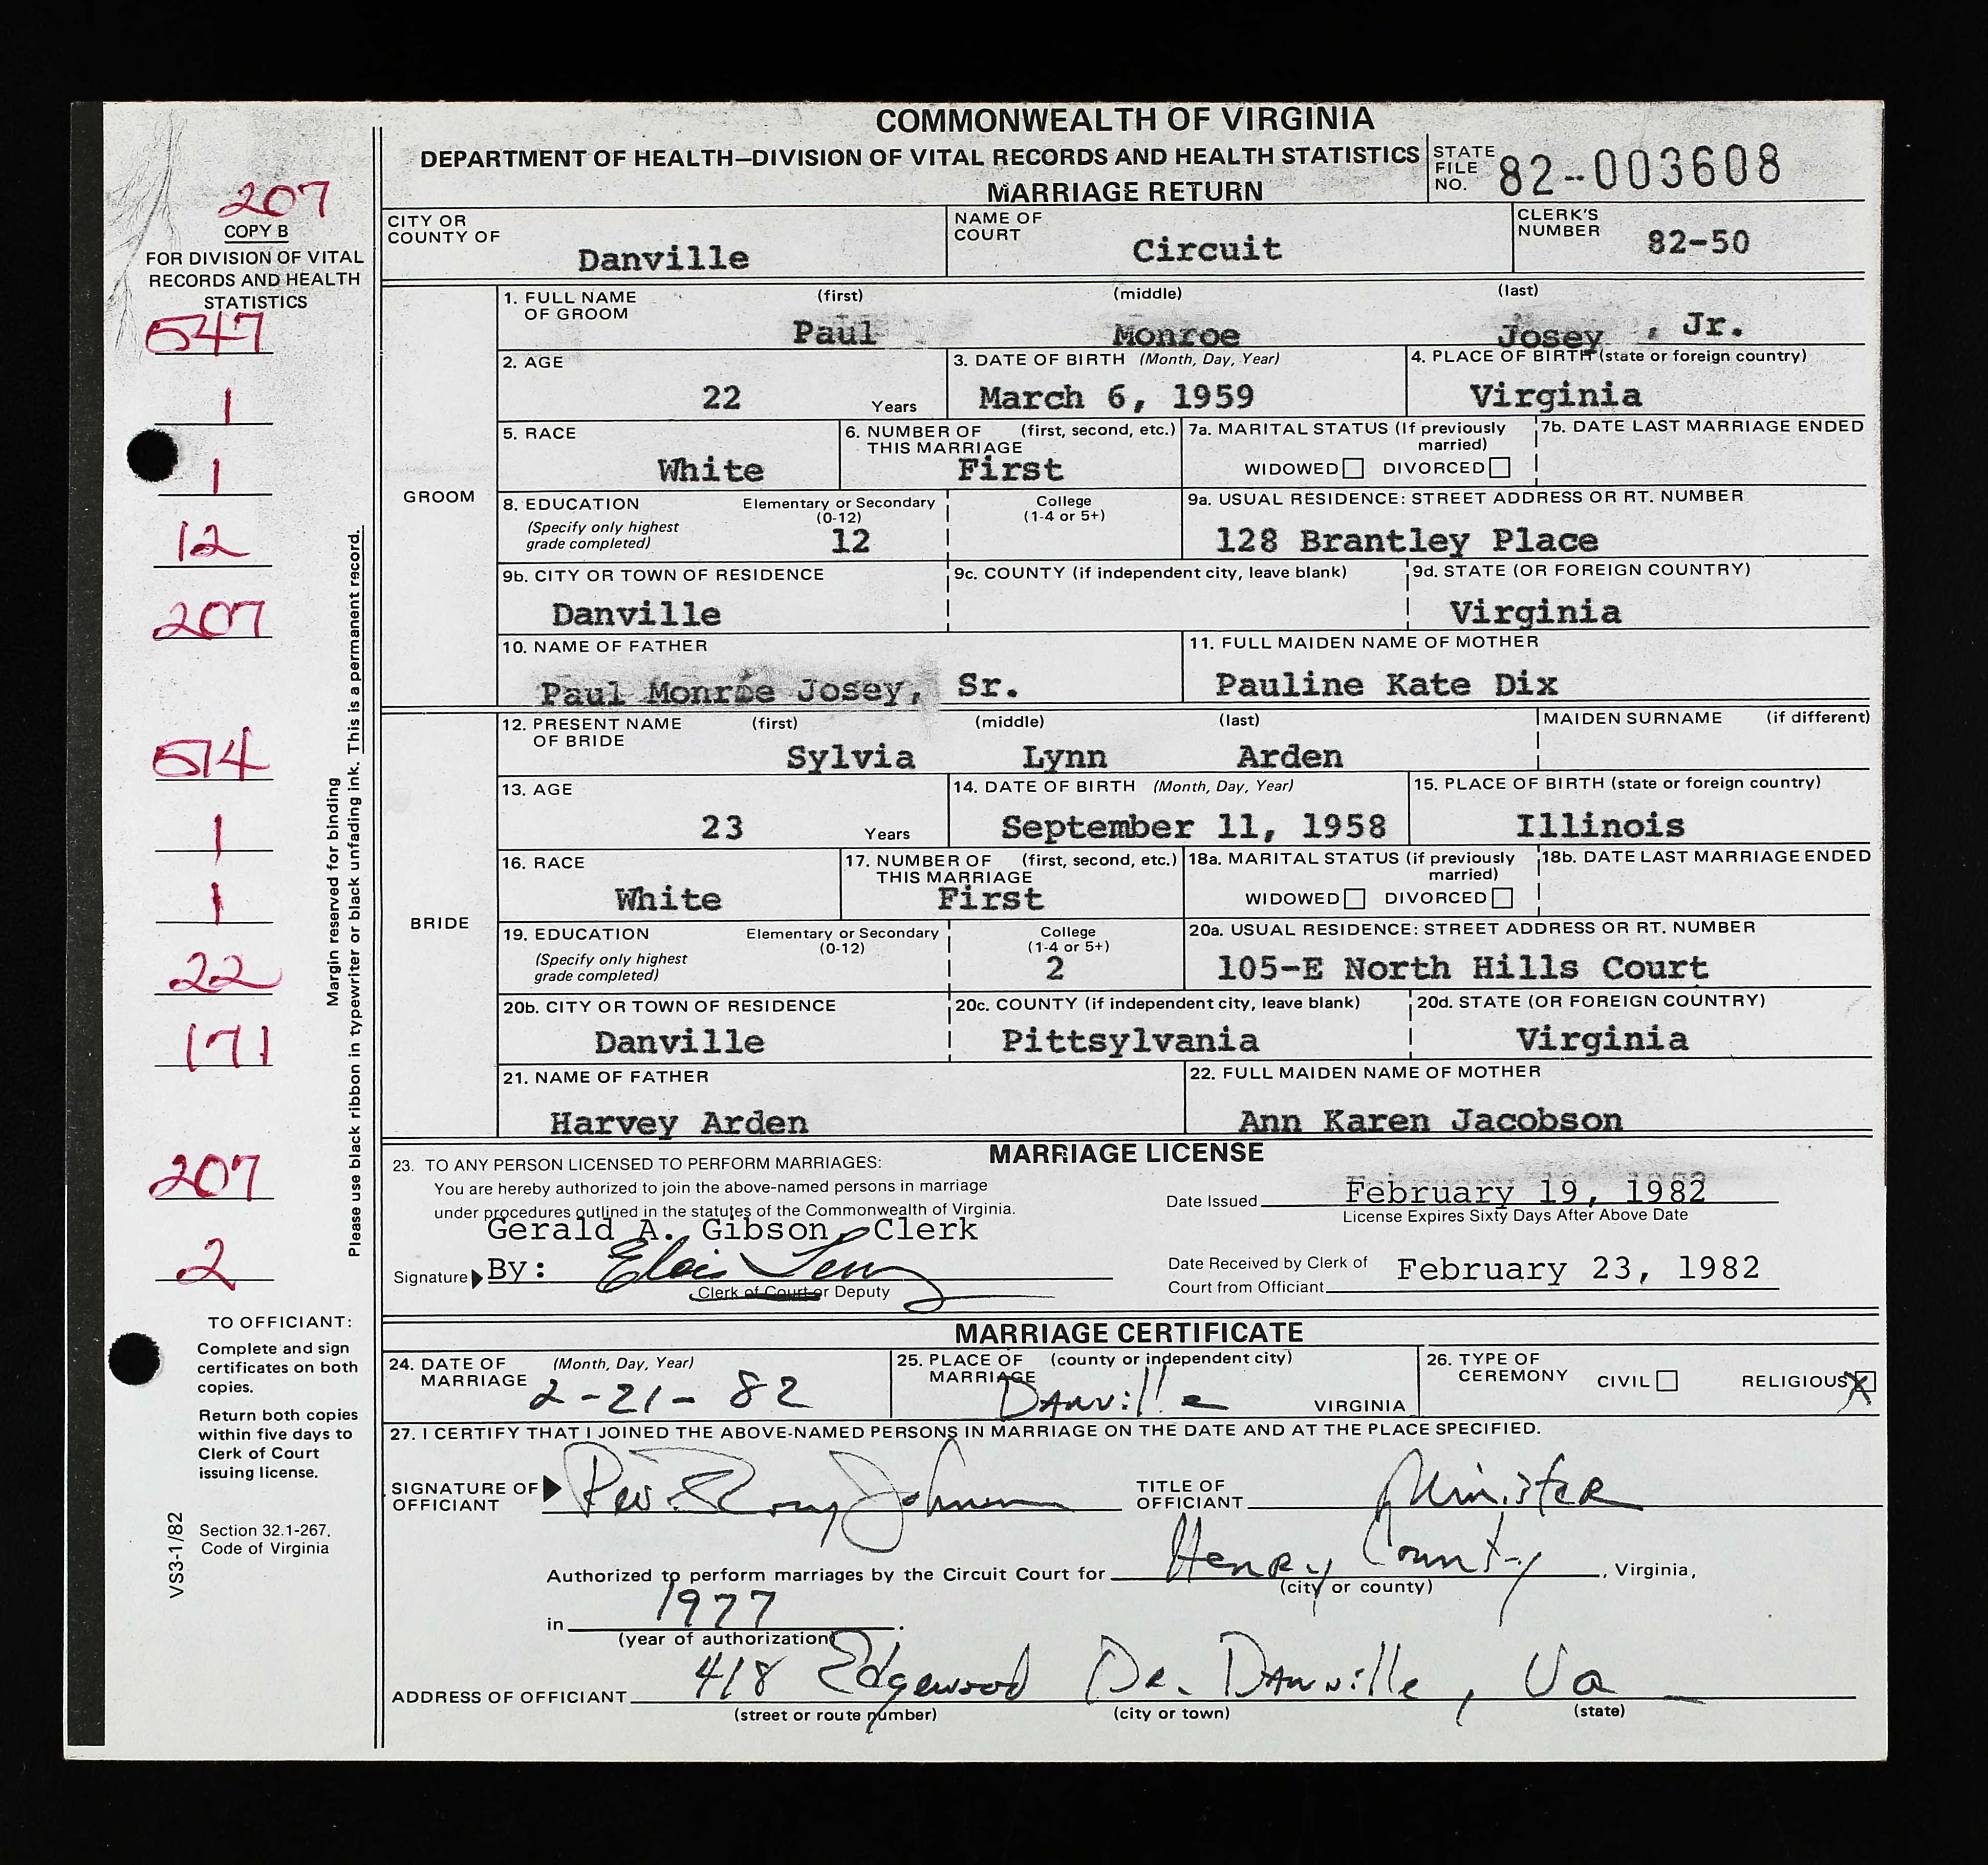 COMMONWEALTH OF VIRGINIA
DEPARTMENT OF HEALTH—DIVISION OF VITAL RECORDS AND HEALTH STATISTICS
MARRIAGE RETURN
STATE FILE NO. 82-003608
207
COPY B
FOR DIVISION OF VITAL
RECORDS AND HEALTH
STATISTICS
547
1
1
12
207
514
1
1
22
171
207
2
Margin reserved for binding
Please use black ribbon in typewriter or black unfading ink. This is a permanent record.
TO OFFICIANT:
Complete and sign
certificates on both
copies.
Return both copies
within five days to
Clerk of Court
issuing license.
Section 32.1-267,
Code of Virginia
VS3-1/82
CITY OR COUNTY OF Danville
NAME OF COURT Circuit
CLERK'S NUMBER 82-50
GROOM
1. FULL NAME OF GROOM (first) (middle) (last)
Paul Monroe Josey, Jr.
2. AGE 22 Years
3. DATE OF BIRTH (Month, Day, Year) March 6, 1959
4. PLACE OF BIRTH (state or foreign country) Virginia
5. RACE White
6. NUMBER OF THIS MARRIAGE (first, second, etc.) First
7a. MARITAL STATUS (If previously married) WIDOWED DIVORCED
7b. DATE LAST MARRIAGE ENDED
8. EDUCATION (Specify only highest grade completed) Elementary or Secondary (0-12) 12 College (1-4 or 5+)
9a. USUAL RESIDENCE: STREET ADDRESS OR RT. NUMBER 128 Brantley Place
9b. CITY OR TOWN OF RESIDENCE Danville
9c. COUNTY (if independent city, leave blank)
9d. STATE (OR FOREIGN COUNTRY) Virginia
10. NAME OF FATHER Paul Monroe Josey, Sr.
11. FULL MAIDEN NAME OF MOTHER Pauline Kate Dix
BRIDE
12. PRESENT NAME OF BRIDE (first) (middle) (last) MAIDEN SURNAME (if different)
Sylvia Lynn Arden
13. AGE 23 Years
14. DATE OF BIRTH (Month, Day, Year) September 11, 1958
15. PLACE OF BIRTH (state or foreign country) Illinois
16. RACE White
17. NUMBER OF THIS MARRIAGE (first, second, etc.) First
18a. MARITAL STATUS (if previously married) WIDOWED DIVORCED
18b. DATE LAST MARRIAGE ENDED
19. EDUCATION (Specify only highest grade completed) Elementary or Secondary (0-12) College (1-4 or 5+) 2
20a. USUAL RESIDENCE: STREET ADDRESS OR RT. NUMBER 105-E North Hills Court
20b. CITY OR TOWN OF RESIDENCE Danville
20c. COUNTY (if independent city, leave blank) Pittsylvania
20d. STATE (OR FOREIGN COUNTRY) Virginia
21. NAME OF FATHER Harvey Arden
22. FULL MAIDEN NAME OF MOTHER Ann Karen Jacobson
MARRIAGE LICENSE
23. TO ANY PERSON LICENSED TO PERFORM MARRIAGES:
You are hereby authorized to join the above-named persons in marriage
under procedures outlined in the statutes of the Commonwealth of Virginia.
Date Issued February 19, 1982
License Expires Sixty Days After Above Date
Gerald A. Gibson, Clerk
Signature By:
Clerk of Court or Deputy
Date Received by Clerk of
Court from Officiant February 23, 1982
MARRIAGE CERTIFICATE
24. DATE OF MARRIAGE (Month, Day, Year) 2-21-82
25. PLACE OF MARRIAGE (county or independent city) Danville VIRGINIA
26. TYPE OF CEREMONY CIVIL RELIGIOUS X
27. I CERTIFY THAT I JOINED THE ABOVE-NAMED PERSONS IN MARRIAGE ON THE DATE AND AT THE PLACE SPECIFIED.
SIGNATURE OF OFFICIANT Rev. Johnson
TITLE OF OFFICIANT Minister
Authorized to perform marriages by the Circuit Court for Henry County, Virginia,
(city or county)
in 1977.
(year of authorization)
ADDRESS OF OFFICIANT 418 Edgewood Dr. Danville, Va
(street or route number) (city or town) (state)